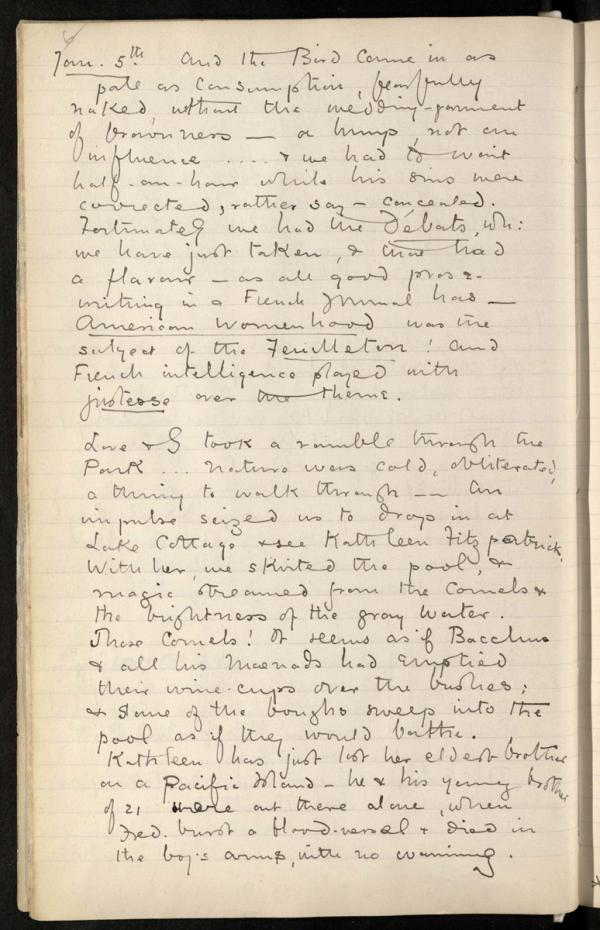 Jan. 5th And the Bird came in as
pale as consumption, fearfully
naked, without the wedding-garment
of brownness — a lump, not an
influence .... & we had to wait
half-an-hour while his sins were
corrected, rather say — concealed.
Fortunately we had the Débats, wh:
we have just taken, & that had
a flavour — as all good prose-
writing in a French Journal has —
American womenhood was the
subject of the Feuilleton! And
French intelligence played with
justesse over the theme.
Love & I took a ramble through the
Park ... nature was cold, obliterated,
a thing to walk through — An
impulse seized us to drop in at
Lake Cottage & see Kathleen Fitzpatrick.
With her, we skirted the pool, &
magic streamed from the Cornels &
the brightness of the gray water.
Those Cornels! It seems as if Bacchus
& all his Maenads had emptied
their wine-cups over the bushes;
& some of the boughs sweep into the
pool as if they would bathe.
Kathleen has just lost her eldest brother
on a Pacific Island — he & his young brother
of 21 were out there alone, when
Fred. burst a blood-vessel & died in
the boy's arms, with no warning.